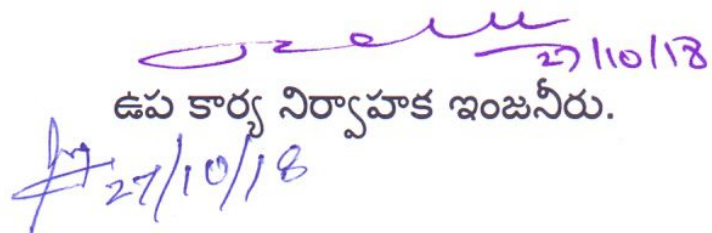 27/10/18
ఉప కార్య నిర్వాహక ఇంజనీరు.
27/10/18